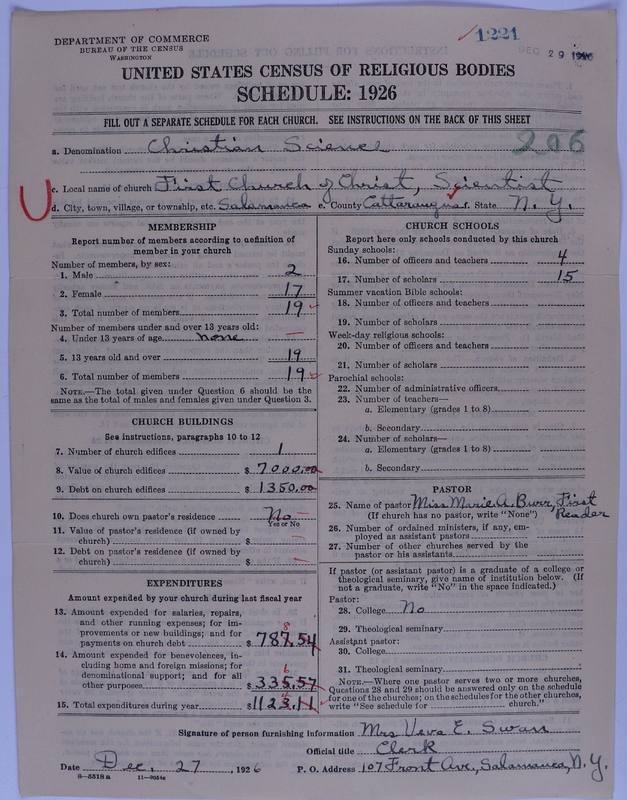 1221
DEC 29 1926
DEPARTMENT OF COMMERCE
BUREAU OF THE CENSUS
WASHINGTON
UNITED STATES CENSUS OF RELIGIOUS BODIES
SCHEDULE: 1926
FILL OUT A SEPARATE SCHEDULE FOR EACH CHURCH. SEE INSTRUCTIONS ON THE BACK OF THIS SHEET
a. Denomination Christian Science 206
c. Local name of church First Church of Christ, Scientist
d. City, town, village, or township, etc. Salamanca e. County Cattaraugus f. State N. Y.
MEMBERSHIP
Report number of members according to definition of
member in your church
Number of members, by sex:
1. Male 2
2. Female 17
3. Total number of members 19
Number of members under and over 13 years old:
4. Under 13 years of age none
5. 13 years old and over 19
6. Total number of members 19
NOTE.—The total given under Question 6 should be the
same as the total of males and females given under Question 3.
CHURCH BUILDINGS
See instructions, paragraphs 10 to 12
7. Number of church edifices 1
8. Value of church edifices $ 7000.00
9. Debt on church edifices $ 1350.00
10. Does church own pastor's residence No
Yes or No
11. Value of pastor's residence (if owned by
church) $
12. Debt on pastor's residence (if owned by
church) $
EXPENDITURES
Amount expended by your church during last fiscal year
13. Amount expended for salaries, repairs,
and other running expenses; for im-
provements or new buildings; and for
payments on church debt $ 787.54
8
14. Amount expended for benevolences, in-
cluding home and foreign missions; for
denominational support; and for all
other purposes $ 335.57
6
15. Total expenditures during year $ 1123.11
CHURCH SCHOOLS
Report here only schools conducted by this church
Sunday schools:
16. Number of officers and teachers 4
17. Number of scholars 15
Summer vacation Bible schools:
18. Number of officers and teachers
19. Number of scholars
Week-day religious schools:
20. Number of officers and teachers
21. Number of scholars
Parochial schools:
22. Number of administrative officers
23. Number of teachers—
a. Elementary (grades 1 to 8)
b. Secondary
24. Number of scholars—
a. Elementary (grades 1 to 8)
b. Secondary
PASTOR
25. Name of pastor Miss Marie A. Burr, First
(If church has no pastor, write "None") Reader
26. Number of ordained ministers, if any, em-
ployed as assistant pastors
27. Number of other churches served by the
pastor or his assistants
If pastor (or assistant pastor) is a graduate of a college or
theological seminary, give name of institution below. (If
not a graduate, write "No" in the space indicated.)
Pastor:
28. College No
29. Theological seminary
Assistant pastor:
30. College
31. Theological seminary
NOTE.—Where one pastor serves two or more churches,
Questions 28 and 29 should be answered only on the schedule
for one of the churches; on the schedules for the other churches,
write "See schedule for church."
Signature of person furnishing information Mrs Veva E. Swan
Official title Clerk
Date Dec. 27, 1926 P. O. Address 107 Front Ave., Salamanca, N. Y.
8—5518 a 11—9054a